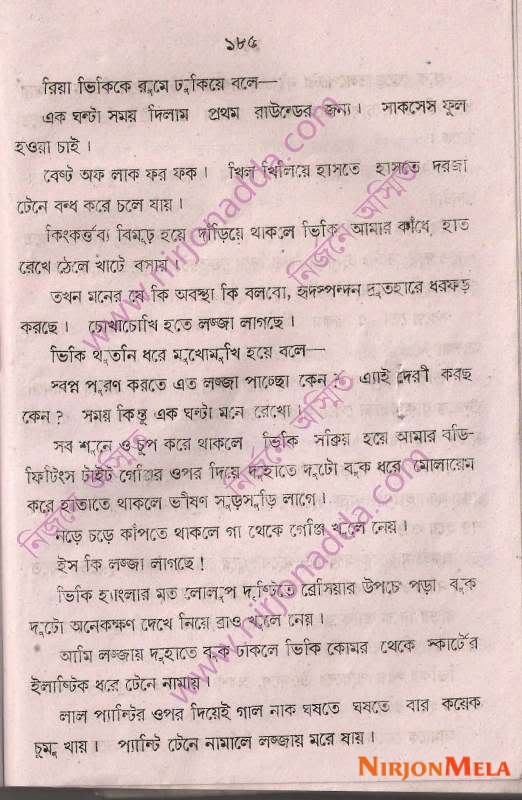 ১৮৫
রিয়া ভিকিকে রুমে ঢুকিয়ে বলে—
এক ঘন্টা সময় দিলাম প্রথম রাউন্ডের জন্য। সাকসেস ফুল
হওয়া চাই।
বেষ্ট অফ লাক ফর ফক। খিল খিলিয়ে হাসতে হাসতে দরজা
টেনে বন্ধ করে চলে যায়।
কিংকর্ত্তব্য বিমূঢ় হয়ে দাঁড়িয়ে থাকলে ভিকি আমার কাঁধে হাত
রেখে ঠেলে খাটে বসায়।
তখন মনের যে কি অবস্থা কি বলবো, হৃদস্পন্দন দ্রুতহারে ধরফড়
করছে। চোখাচোখি হতে লজ্জা লাগছে।
ভিকি থুতনি ধরে মুখোমুখি হয়ে বলে—
স্বপ্ন পূরণ করতে এত লজ্জা পাচ্ছো কেন? এ্যাই দেরী করছ
কেন? সময় কিন্তু এক ঘন্টা মনে রেখো।
সব শুনে ও চুপ করে থাকলে ভিকি সক্রিয় হয়ে আমার বডি-
ফিটিংস টাইট গেঞ্জির ওপর দিয়ে দুহাতে দুটো বুক ধরে মোলায়েম
করে হাতাতে থাকলে ভীষণ সুড়সুড়ি লাগে।
নড়ে চড়ে কাঁপতে থাকলে গা থেকে গেঞ্জি খুলে নেয়।
ইস কি লজ্জা লাগছে!
ভিকি হ্যাংলার মত লোলুপ দৃষ্টিতে ব্রেসিয়ার উপচে পড়া বুক
দুটো অনেকক্ষণ দেখে নিয়ে ব্রাও খুলে নেয়।
আমি লজ্জায় দুহাতে বুক ঢাকলে ভিকি কোমর থেকে স্কার্টের
ইলাষ্টিক ধরে টেনে নামায়।
লাল প্যান্টির ওপর দিয়েই গাল নাক ঘষতে ঘষতে বার কয়েক
চুমু খায়। প্যান্টি টেনে নামালে লজ্জায় মরে যায়।
www.nirjonadda.com
নির্জনে অস্মিত
নির্জনে অস্মিত
www.nirjonadda.com
NIRJONMELA